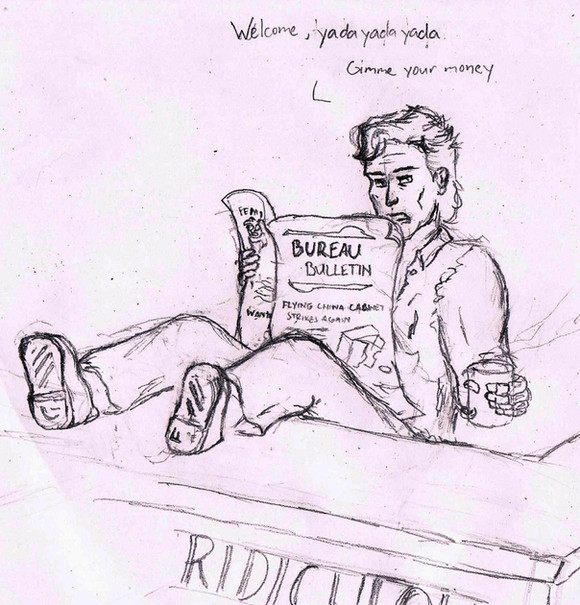 Welcome, yada yada yada
Gimme your money
BUREAU
BULLETIN
FLYING CHINA CABINET
STRIKES AGAIN
RIDICULO